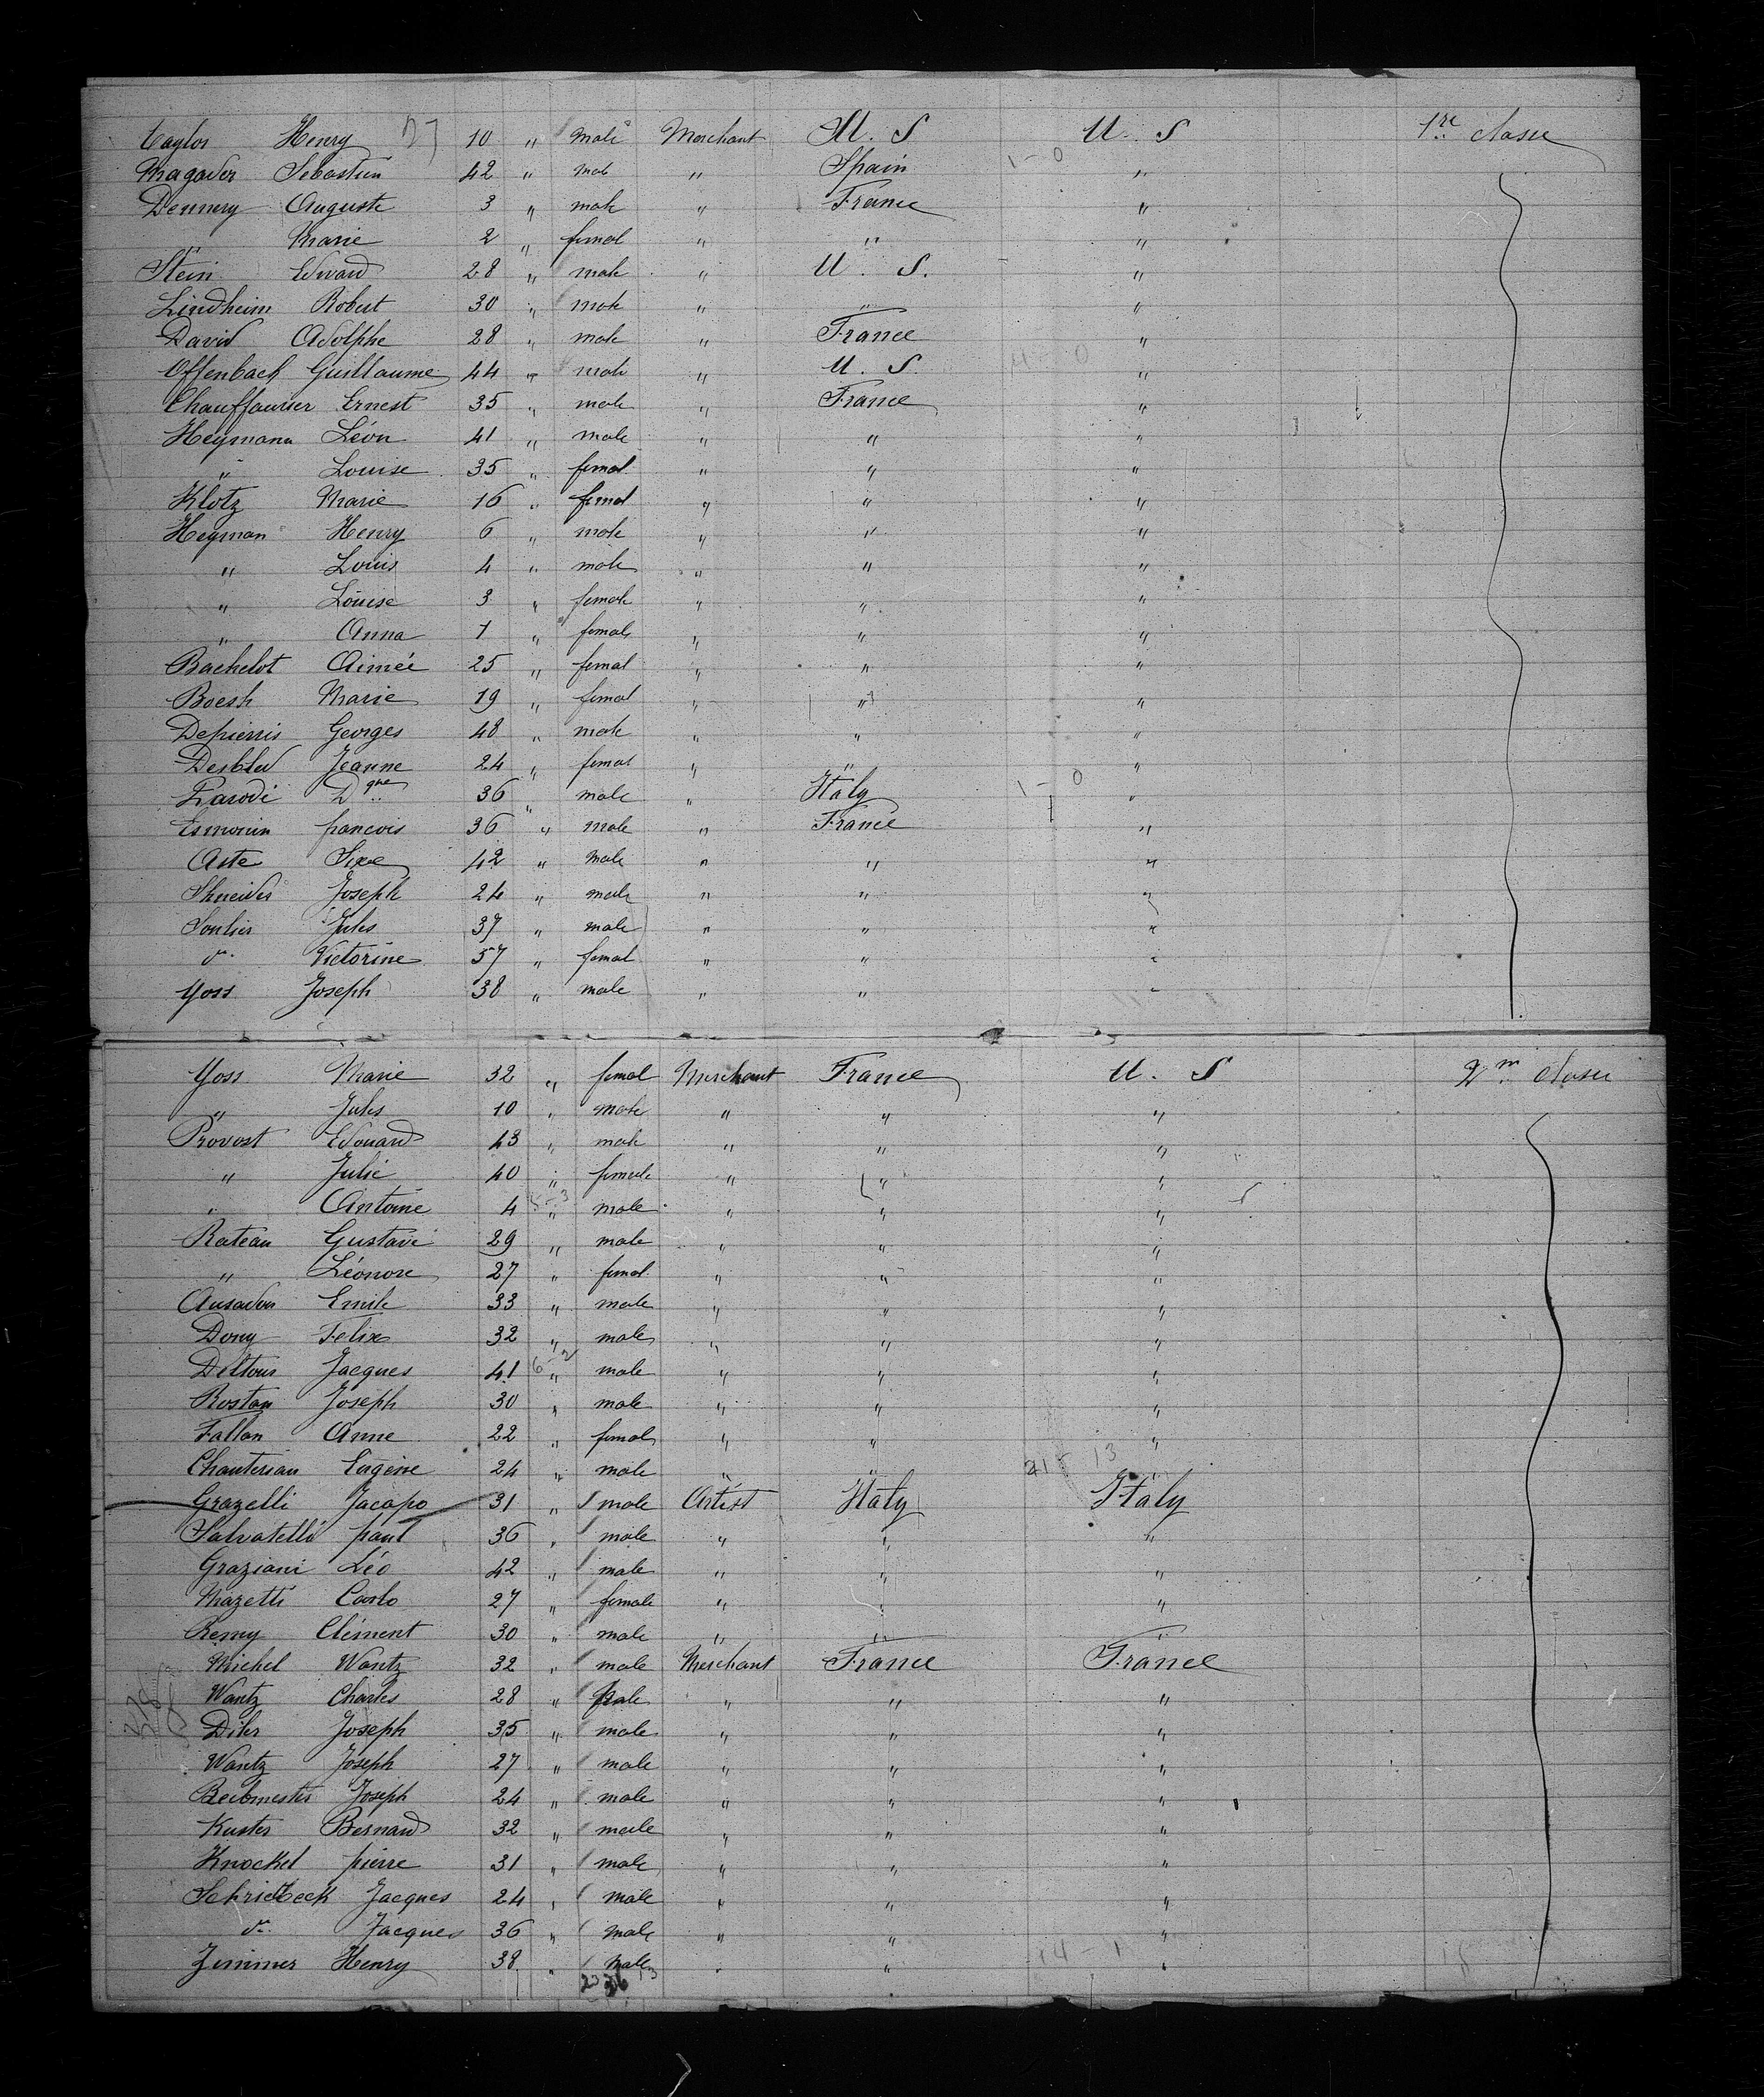 Taylor Henry 10 " male Merchant U. S U. S 1re classe
Magader Sebastien 42 " male " Spain "
Dennery Auguste 3 " male " France "
" Marie 2 " femal " " "
Stein Edward 28 " male " U. S. "
Lindheim Robert 30 " male " " "
David Adolphe 28 " male " France "
Offenbach Guillaume 44 " male " U. S. "
Chauffourier Ernest 35 " male " France "
Heymann Léon 41 " male " " "
" Louise 35 " femal " " "
Klotz Marie 16 " femal " " "
Heyman Henry 6 " male " " "
" Louis 4 " male " " "
" Louise 3 " female " " "
" Anna 1 " female " " "
Bachelot Aimée 25 " femal " " "
Boesh Marie 19 " femal " " "
Depierris Georges 48 " male " " "
Jeanne 24 " femal " " "
Parodi Dque 36 " male " Italy "
Esmouin francois 36 " male " France "
Aste Sixe 42 " male " " "
Shneider Joseph 24 " male " " "
Soulier Jules 37 " male " " "
do Victorine 57 " femal " " "
Yoss Joseph 38 " male " " "
Yoss Marie 32 " femal Merchant France U. S 2me classe
" Jules 10 " male " " "
Provost Edouard 43 " male " " "
" Julie 40 " female " " "
" Antoine 4 " male " " "
Rateau Gustave 29 " male " " "
" Léonore 27 " femal " " "
Ausadou Emile 33 " male " " "
Dony Felix 32 " male " " "
Deltour Jacques 41 " male " " "
Rostan Joseph 30 " male " " "
Fallon Anne 22 " femal " " "
Chanterian Eugène 24 " male " " "
Grazelli Jacopo 31 " male Artist Italy Italy
Salvatelli paul 36 " male " " "
Graziani Léo 42 " male " " "
Mazetti Carlo 27 " female " " "
Remy Clément 30 " male " " "
Michel Wantz 32 " male Merchant France France
Wantz Charles 28 " male " " "
Diler Joseph 35 " male " " "
Wantz Joseph 27 " male " " "
Beibmester Joseph 24 " male " " "
Kuster Bernard 32 " male " " "
Knockel pierre 31 " male " " "
Schrietbeck Jacques 24 " male " " "
do Jacques 36 " male " " "
Zimmer Henry 38 " male " " "